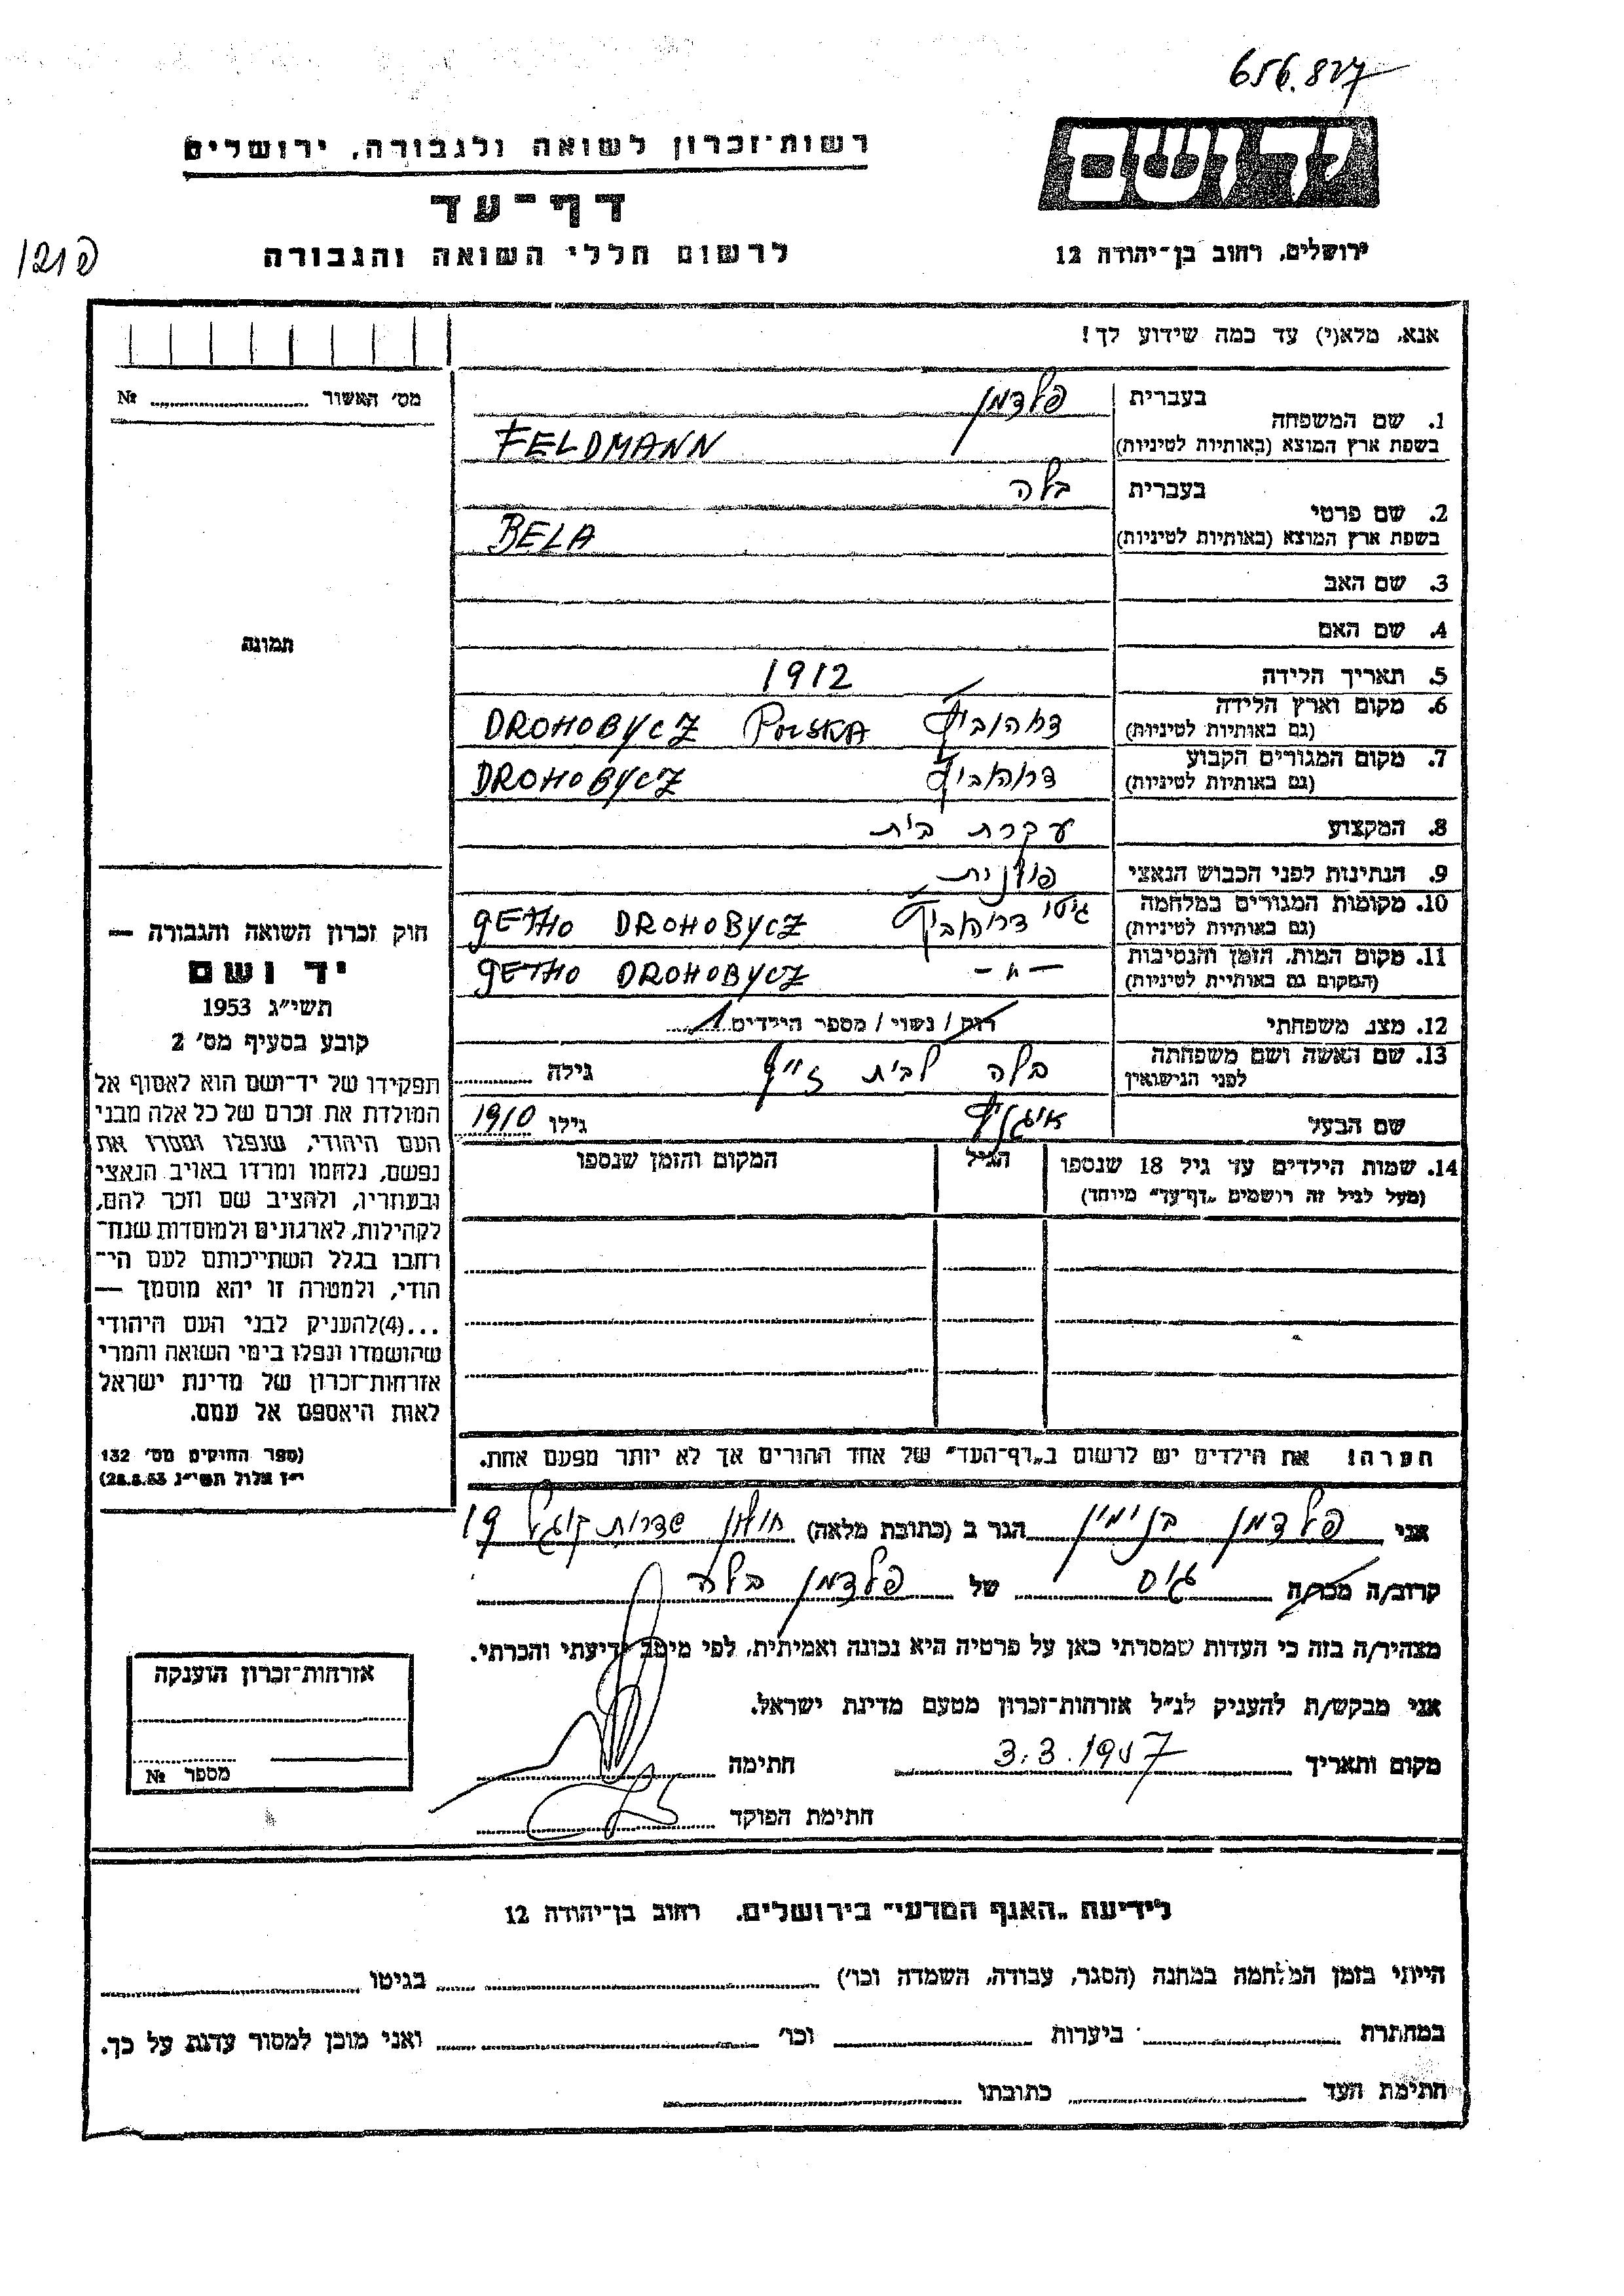 656.827
רשות־זכרון לשואה ולגבורה, ירושלים
יד ושם
דף־עד
לרשום חללי השואה והגבורה
ירושלים, רחוב בן־יהודה 12
אנא, מלא(י) עד כמה שידוע לך!
מס׳ האשור № 
1. שם המשפחה
בעברית פלדמן
בשפת ארץ המוצא (באותיות לטיניות) FELDMANN
2. שם פרטי
בעברית בלה
בשפת ארץ המוצא (באותיות לטיניות) BELA
3. שם האב
4. שם האם
תמונה
5. תאריך הלידה 1912
6. מקום וארץ הלידה דרוהוביץ DROHOBYCZ POLSKA
(גם באותיות לטיניות)
7. מקום המגורים הקבוע דרוהוביץ DROHOBYCZ
(גם באותיות לטיניות)
8. המקצוע עקרת בית
9. הנתינות לפני הכבוש הנאצי פולנית
10. מקומות המגורים במלחמה גיטו דרוהוביץ GETHO DROHOBYCZ
(גם באותיות לטיניות)
11. מקום המות, הזמן והנסיבות —״— GETHO DROHOBYCZ
(המקום גם באותיות לטיניות)
12. מצב משפחתי רווק / נשוי / מספר הילדים 1
13. שם האשה ושם משפחתה בלה לבית זייף גילה
לפני הנישואין
שם הבעל גילו 1910
14. שמות הילדים עד גיל 18 שנספו הגיל המקום והזמן שנספו
(מעל לגיל זה רושמים „דף־עד״ מיוחד)
הערה! את הילדים יש לרשום ב„דף־העד״ של אחד ההורים אך לא יותר מפעם אחת.
חוק זכרון השואה והגבורה —
יד ושם
תשי״ג 1953
קובע בסעיף מס׳ 2
תפקידו של יד־ושם הוא לאסוף אל
המולדת את זכרם של כל אלה מבני
העם היהודי, שנפלו ומסרו את
נפשם, נלחמו ומרדו באויב הנאצי
ובעוזריו, ולהציב שם וזכר להם,
לקהילות, לארגונים ולמוסדות שנח־
רבו בגלל השתייכותם לעם הי־
הודי, ולמטרה זו יהא מוסמך —
...(4)להעניק לבני העם היהודי
שהושמדו ונפלו בימי השואה והמרי
אזרחות־זכרון של מדינת ישראל
לאות היאספם אל עמם.
(ספר החוקים מס׳ 132
י״ז אלול תשי״ג 28.8.53)
אני פלדמן בנימין הגר ב (כתובת מלאה) חולון שדרות קוגל 19
קרוב/ה מכר/ה גיס של פלדמן בלה
מצהיר/ה בזה כי העדות שמסרתי כאן על פרטיה היא נכונה ואמיתית, לפי מיטב ידיעתי והכרתי.
אני מבקש/ת להעניק לנ״ל אזרחות־זכרון מטעם מדינת ישראל.
מקום ותאריך 3.3.1957 חתימה
חתימת הפוקד
אזרחות־זכרון הוענקה
מספר №
לידיעת „האגף המדעי״ בירושלים, רחוב בן־יהודה 12
הייתי בזמן המלחמה במחנה (הסגר, עבודה, השמדה וכו׳) בגיטו
במחתרת ביערות וכו׳ ואני מוכן למסור עדות על כך.
חתימת העד כתובתו